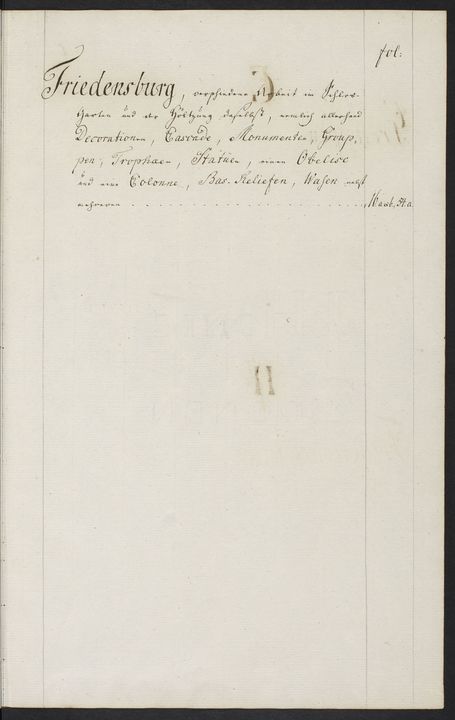 fol:
Friedensburg, verschiedene Arbeit im Schlos-
Garten und der Höltzung daselbst, nemlich allerhand
Decorationen, Cascade, Monumenten, Group-
pen, Trophæen, Statuen, einen Obelisc
und eine Colonne, Bas-Reliefen, Wasen nebst
mehreren